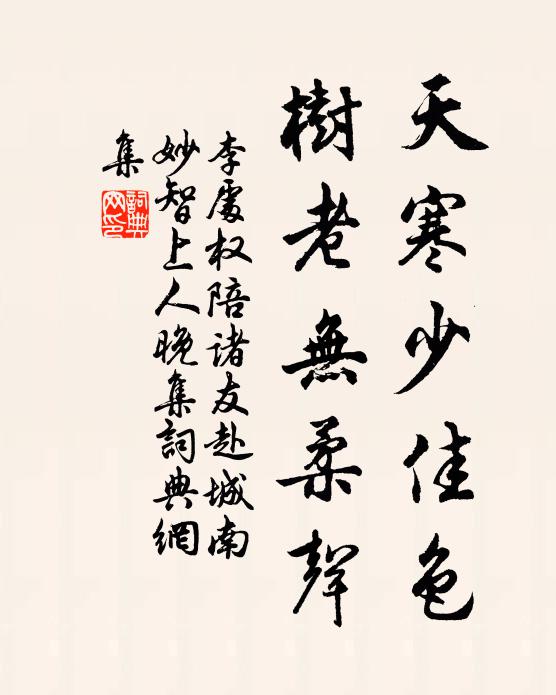 天寒少佳色
樹老無柔聲
李處权陪诸友赴城南
妙智上人晚集詞典網
集
詞典
网印